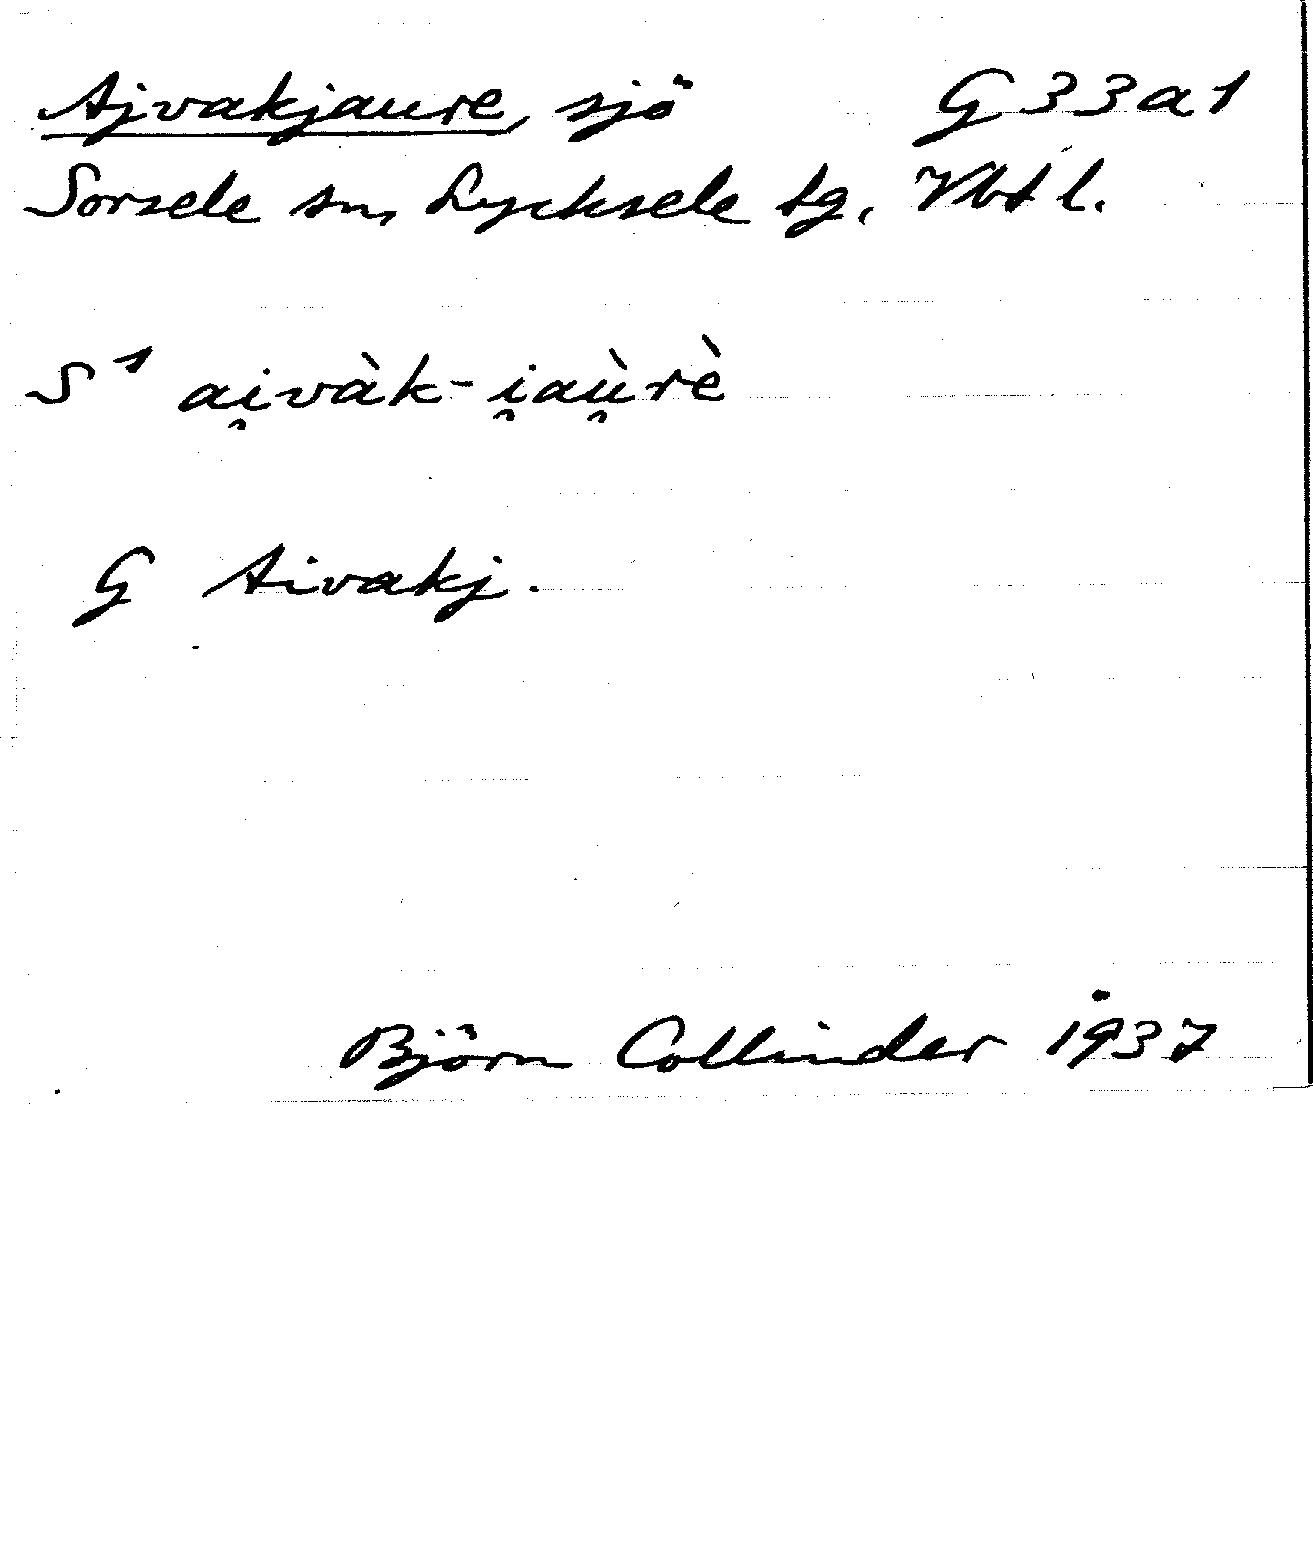 Ajvakjaure, sjö G33a1
Sorsele sn, Lycksele tg, Vbtl.
S¹ ai̯vàk-i̯aù̯rè
G Aivakj.
Björn Collinder 1937